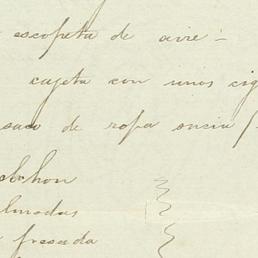 escopeta de aire –
cageta con unos cig
saco de ropa sucia /
lchon
lmodas
fresada